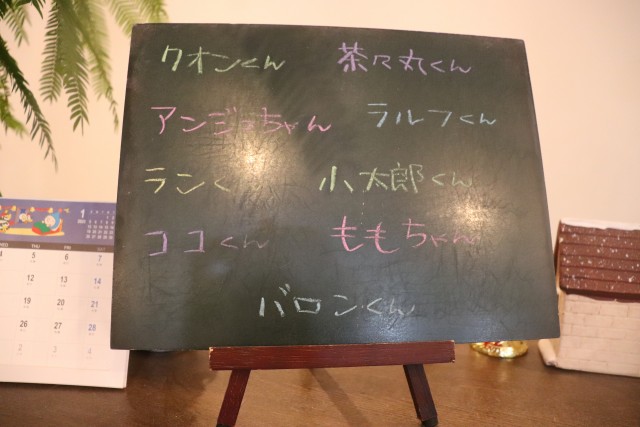 クオンくん 茶々丸くん
アンジーちゃん ラルフくん
ランく 小太郎くん
ココくん ももちゃん
バロンくん
1
THU FRI SAT
5 6 7
12 13 14
19 20 21
26 27 28
2 3 4